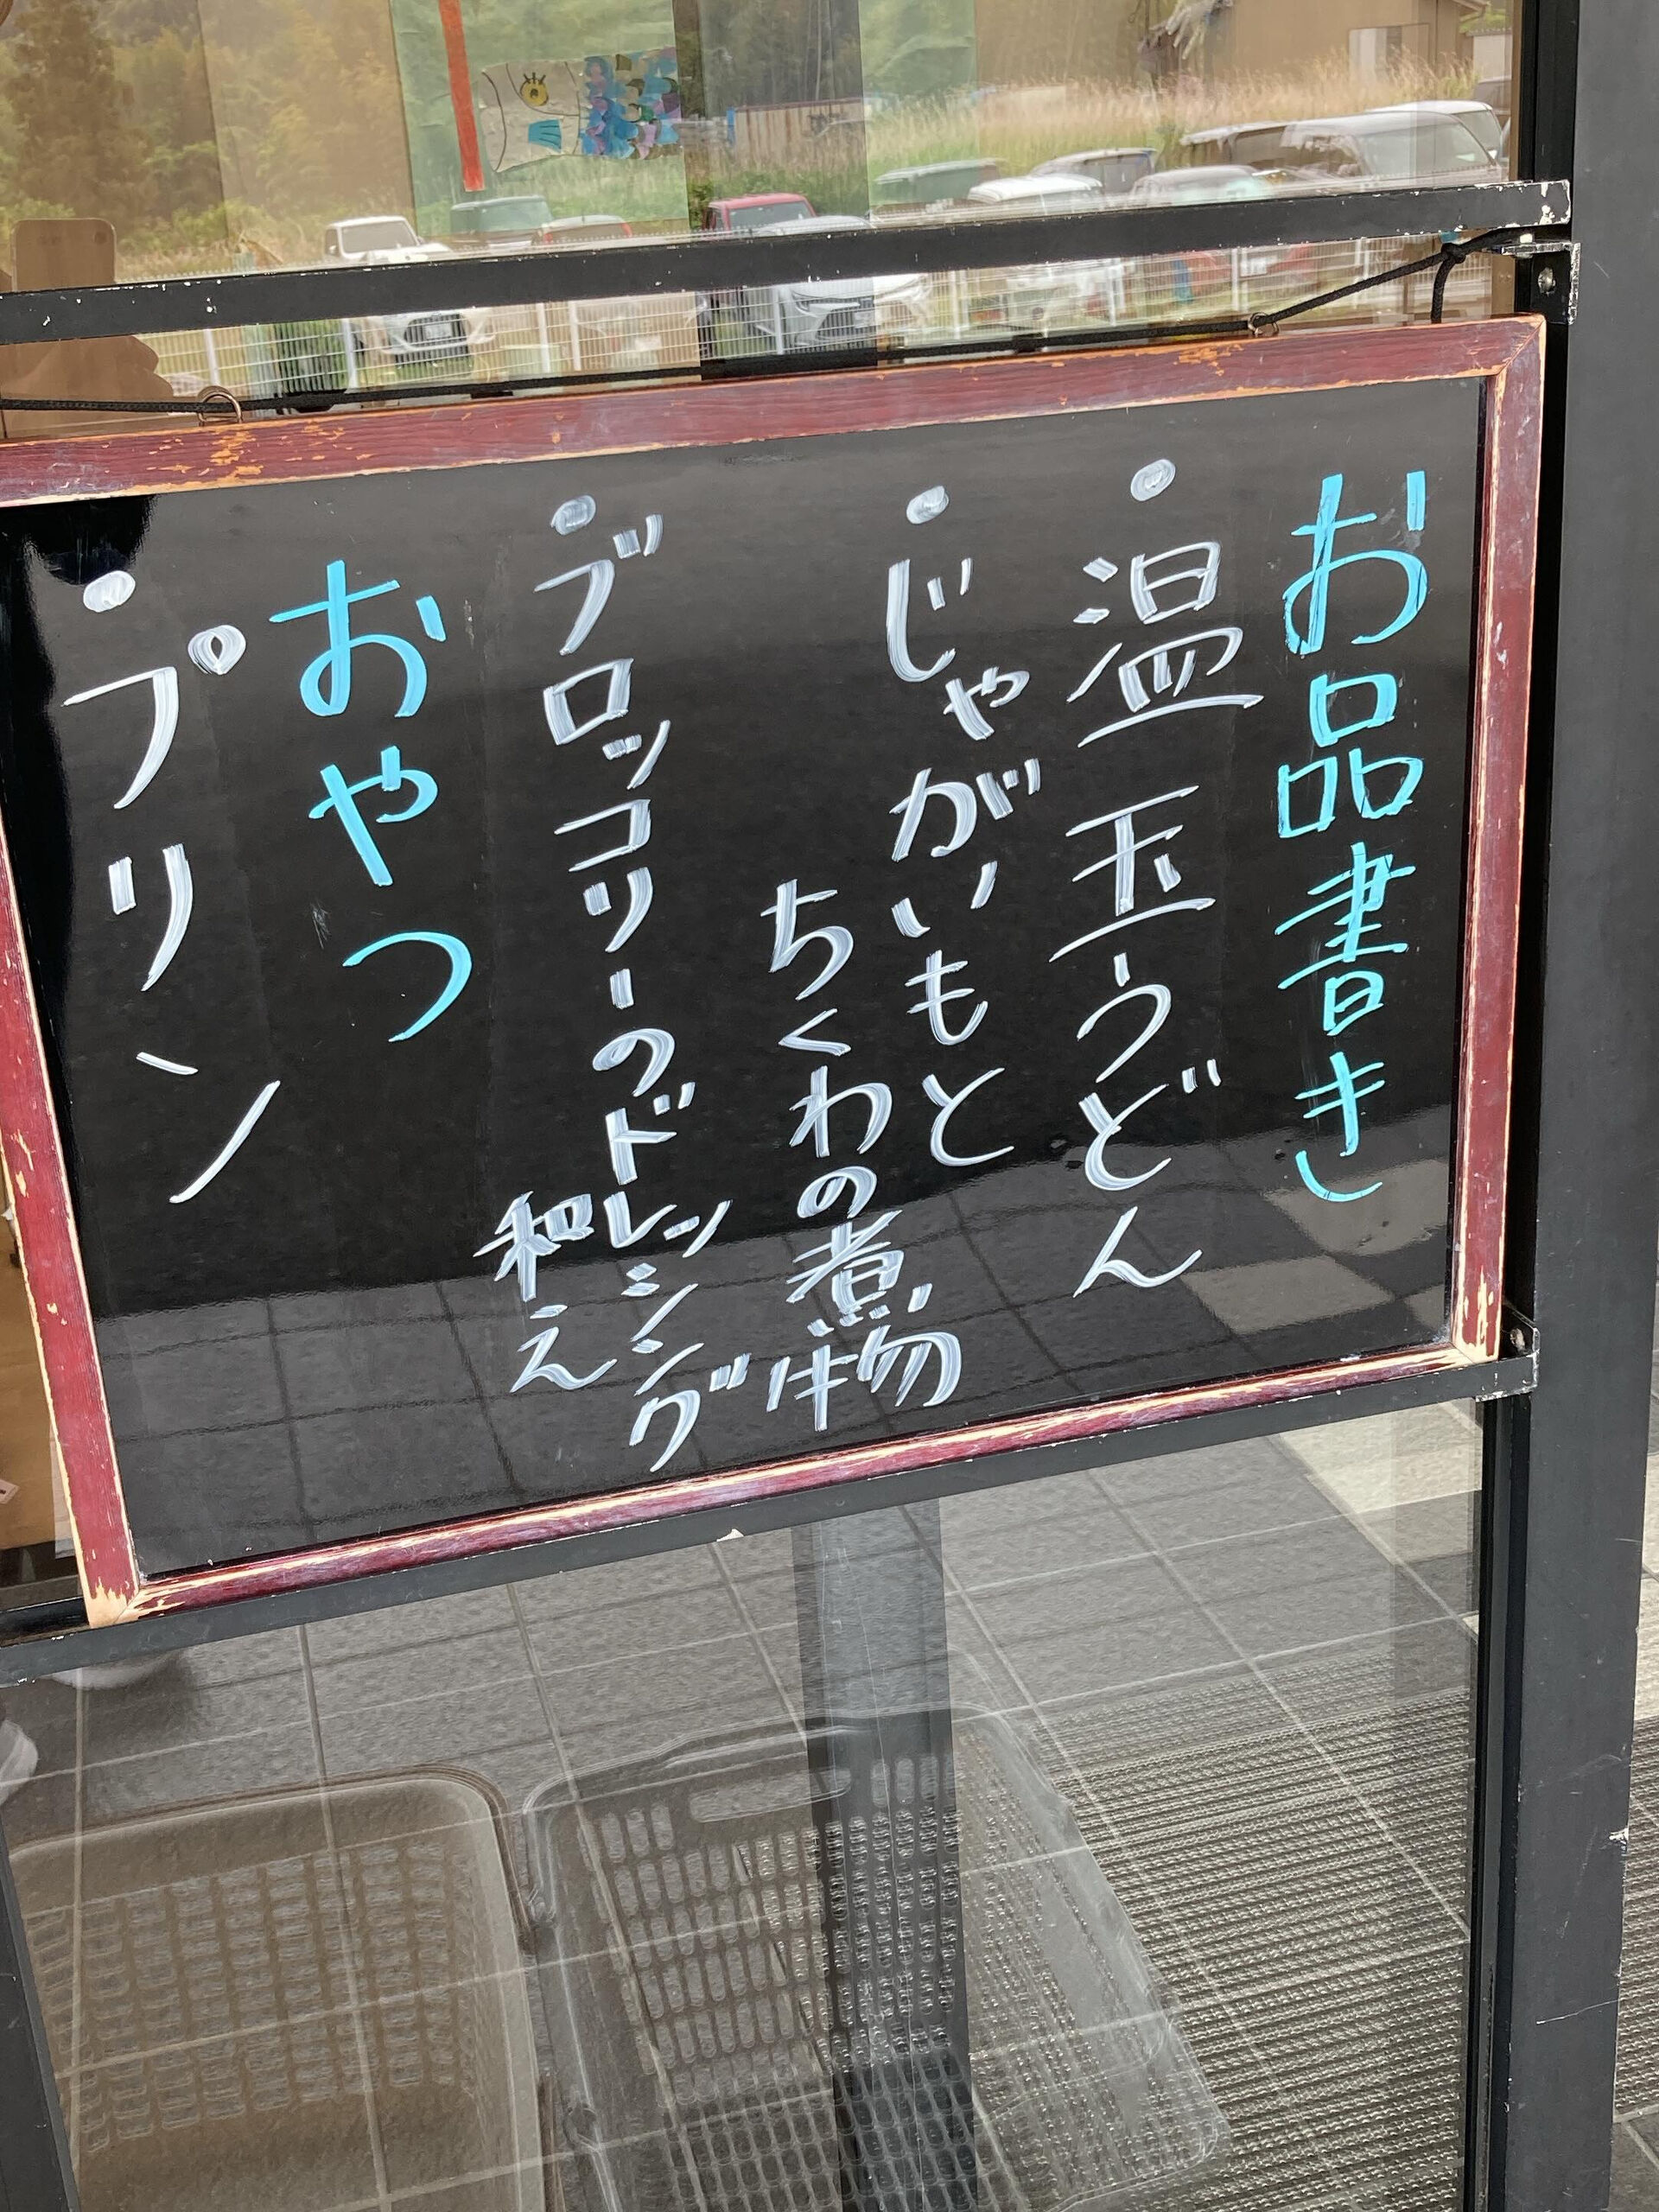 お品書き
・温玉うどん
・じゃがいもと
ちくわの煮物
・ブロッコリーのドレッシング
和え
おやつ
・プリン